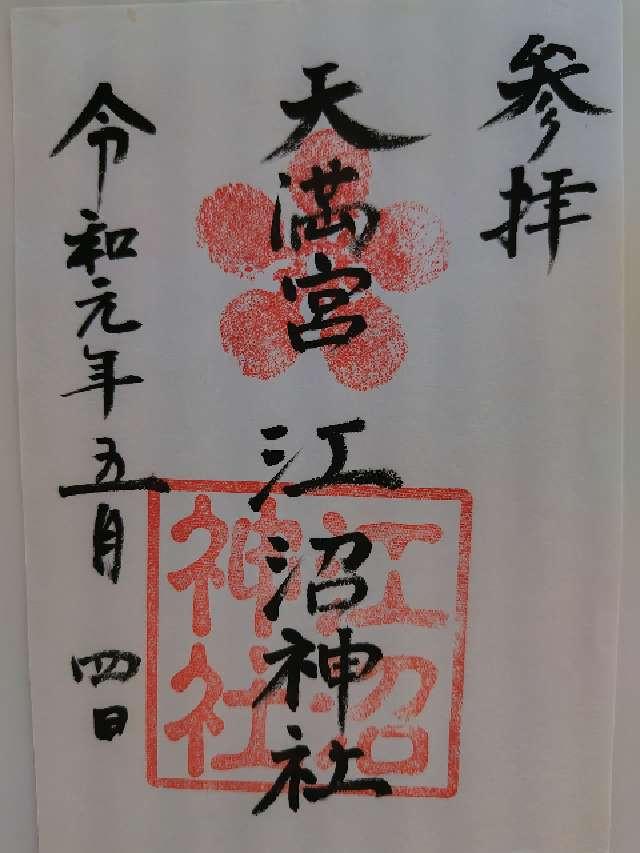 参拝
天満宮 江沼神社
江沼
神社
令和元年五月 四日